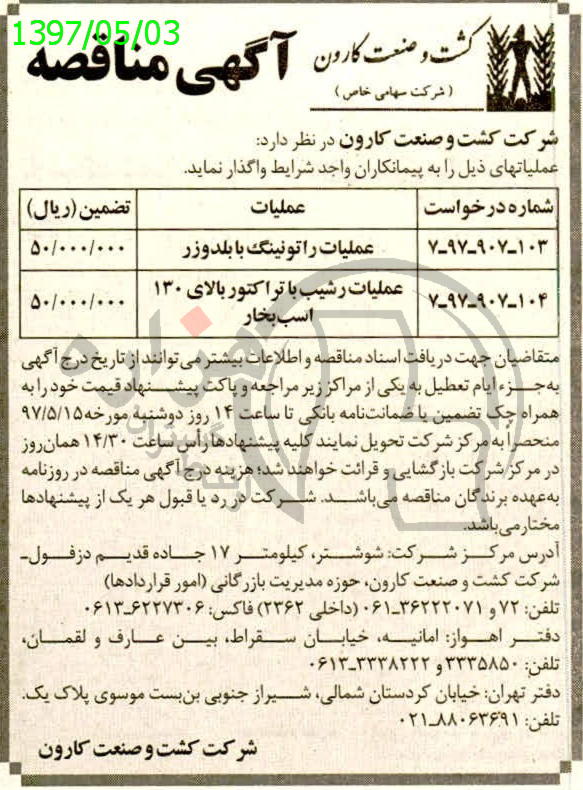 1397/05/03
کشت و صنعت کارون
(شرکت سهامی خاص)
آگهی مناقصه
شرکت کشت و صنعت کارون در نظر دارد:
عملیاتهای ذیل را به پیمانکاران واجد شرایط واگذار نماید.
شماره درخواست عملیات تضمین (ریال)
۷ـ۹۷ـ۹۰۷ـ۱۰۳ عملیات راتونینگ با بلدوزر ۵۰/۰۰۰/۰۰۰
۷ـ۹۷ـ۹۰۷ـ۱۰۴ عملیات رشیب با تراکتور بالای ۱۳۰ ۵۰/۰۰۰/۰۰۰
اسب بخار
متقاضیان جهت دریافت اسناد مناقصه و اطلاعات بیشتر می‌توانند از تاریخ درج آگهی
به‌جزء ایام تعطیل به یکی از مراکز زیر مراجعه و پاکت پیشنهاد قیمت خود را به
همراه چک تضمین یا ضمانت‌نامه بانکی تا ساعت ۱۴ روز دوشنبه مورخه ۹۷/۵/۱۵
منحصراً به مرکز شرکت تحویل نمایند کلیه پیشنهادها رأس ساعت ۱۴/۳۰ همان‌روز
در مرکز شرکت بازگشایی و قرائت خواهند شد؛ هزینه درج آگهی مناقصه در روزنامه
به‌عهده برندگان مناقصه می‌باشد. شرکت در رد یا قبول هر یک از پیشنهادها
مختار می‌باشد.
آدرس مرکز شرکت: شوشتر، کیلومتر ۱۷ جاده قدیم دزفول‌ـ
شرکت کشت و صنعت کارون، حوزه مدیریت بازرگانی (امور قراردادها)
تلفن: ۷۲ و ۳۶۲۲۲۰۷۱ـ۰۶۱ (داخلی ۲۳۶۲) فاکس: ۶۲۲۷۳۰۶ـ۰۶۱۳
دفتر اهواز: امانیه، خیابان سقراط، بین عارف و لقمان،
تلفن: ۳۳۳۵۸۵۰ و ۳۳۳۸۲۲۲ـ۰۶۱۳
دفتر تهران: خیابان کردستان شمالی، شیراز جنوبی بن‌بست موسوی پلاک یک.
تلفن: ۸۸۰۶۳۶۹۱ـ۰۲۱
شرکت کشت و صنعت کارون